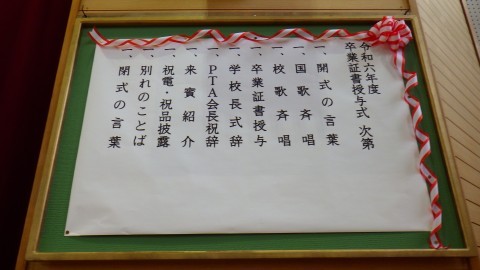 令和六年度
卒業証書授与式 次第
一、開式の言葉
一、国歌斉唱
一、校歌斉唱
一、卒業証書授与
一、学校長式辞
一、PTA会長祝辞
一、来賓紹介
一、祝電・祝品披露
一、別れのことば
一、閉式の言葉